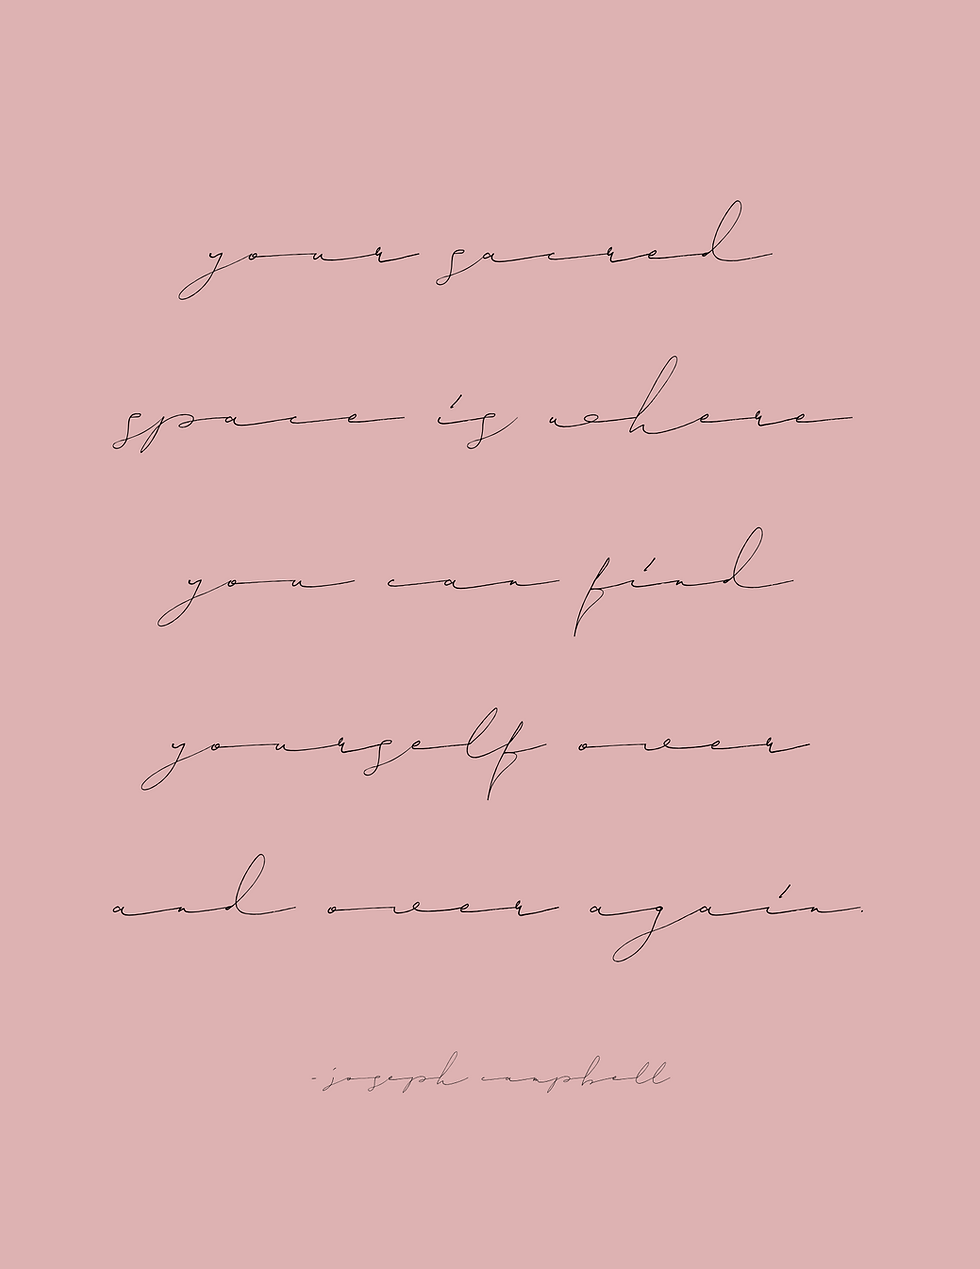 your sacred
space is where
you can find
yourself over
and over again.
-joseph campbell